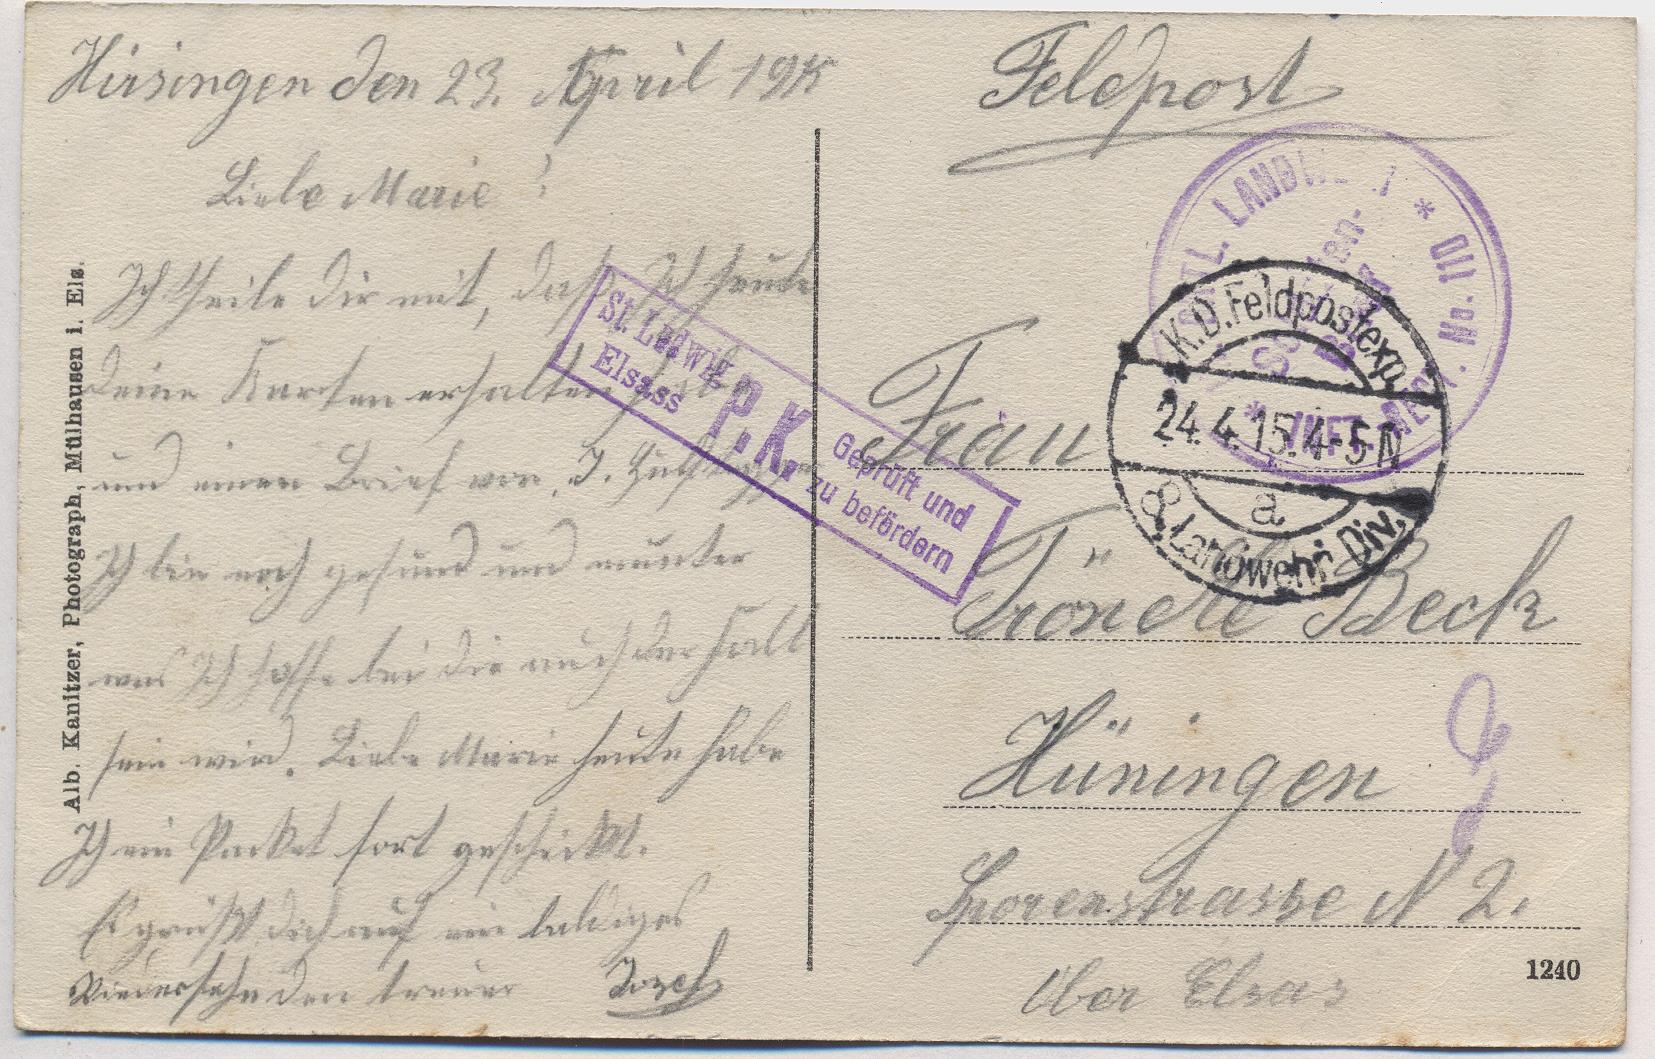 Hirsingen den 23. April 1915
Liebe Marie!
Ich theile dir mit, daß Ich heute
deine Karten erhalten habe
und einen Brief von J.
Ich bin noch gesund und munter
was Ich hoffe bei dir auch der Fall
sein wird. Liebe Marie heute habe
Ich ein Packet fort geschickt.
Es grüßt dich auf ein baldiges
Wiedersehn den treuer Josef
Alb. Kanitzer, Photograph, Mülhausen i. Els.
Feldpost
LANDW
No. 110
K.D. Feldpostexp.
24.4.15. 4-5 N
a
8. Landwehr-Div.
St. Ludwig
Elsass
P.K.
Geprüft und
zu befördern
Frau
Beck
Hüningen
Sporenstrasse N 2.
Ober Elsas
1240